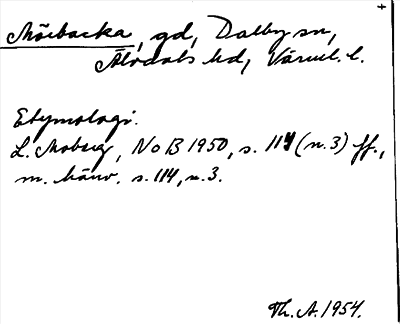 +
Möebacka, gd, Dalby sn,
Älvdals hd, Värml. l.
Etymologi.
L. Moberg, NoB 1950, s. 114 (n. 3) ff.,
m. hänv. s. 114, n. 3.
Th. A. 1954.